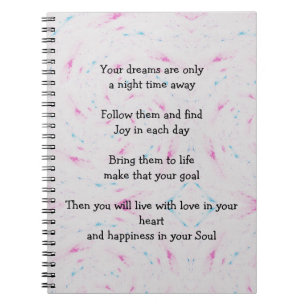 Your dreams are only
a night time away
Follow them and find
Joy in each day
Bring them to life
make that your goal
Then you will live with love in your
heart
and happiness in your Soul